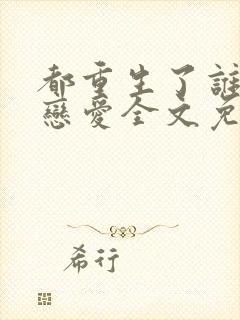 都重生了誰
戀愛全文免
希行